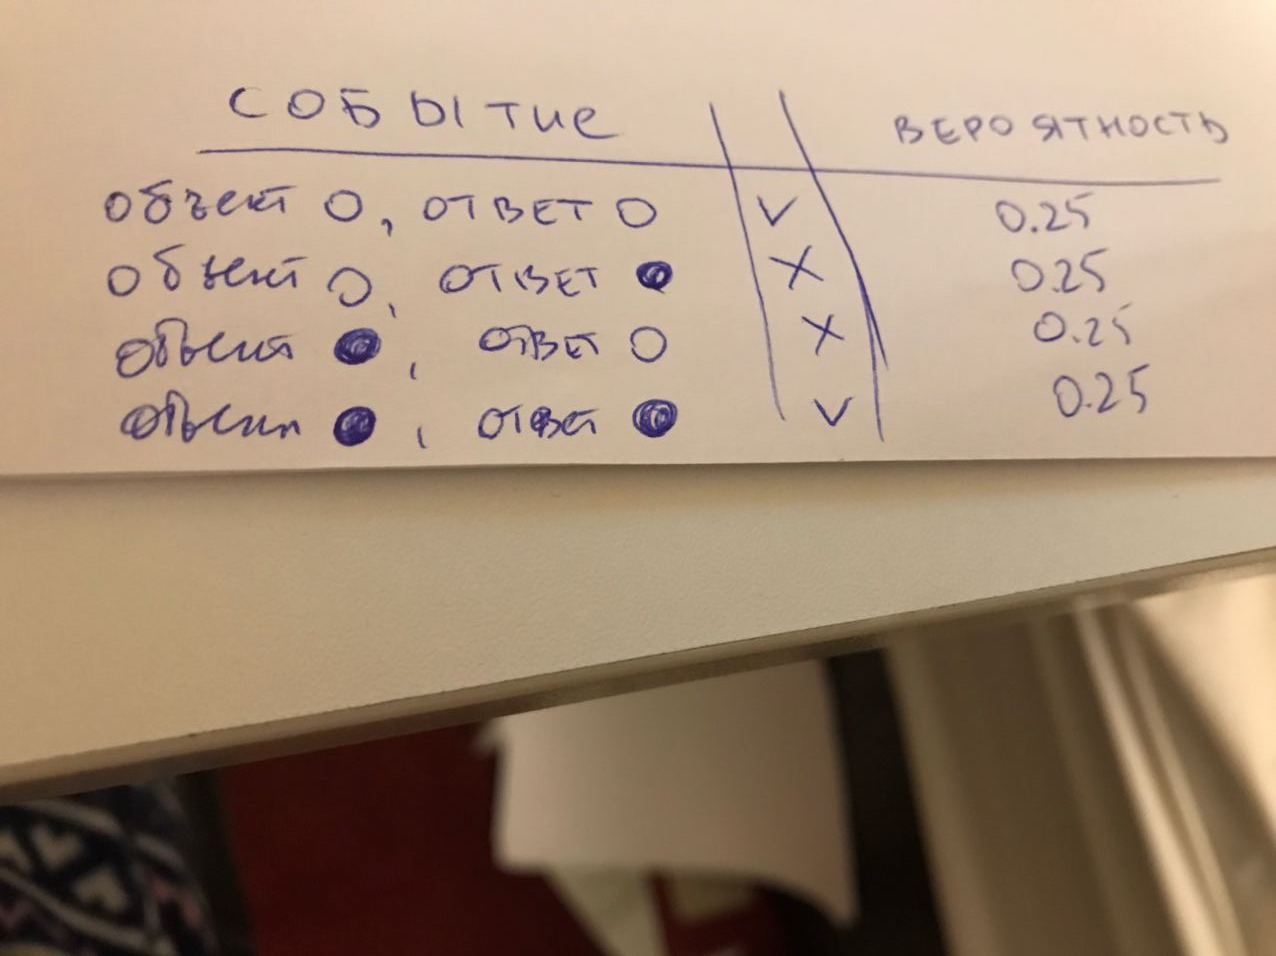 СОБЫТИЕ ВЕРОЯТНОСТЬ
объект ○, ответ ○ ✓ 0.25
объект ○, ответ ● ✗ 0.25
объект ●, ответ ○ ✗ 0.25
объект ●, ответ ● ✓ 0.25